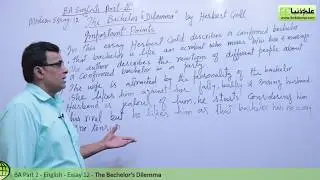 BA English Part-II
Modern Essay 12 "The Bachelor's Dilemma" by Herbert Gold
Important Points
In this essay Herbert Gold describes a confirmed
bachelor is like an acrobat who moves
author describes the reactions of different people about
a confirmed bachelor in a party.
The wife is attracted by the personality of the bachelor
She likes him against her fatty, baldly & snoring husband.
Husband is jealous of him, he starts considering him
his rival but he likes him as this bachelor has no
no tension
BA Part 2 - English - Essay 12 - The Bechelor's Dilemma